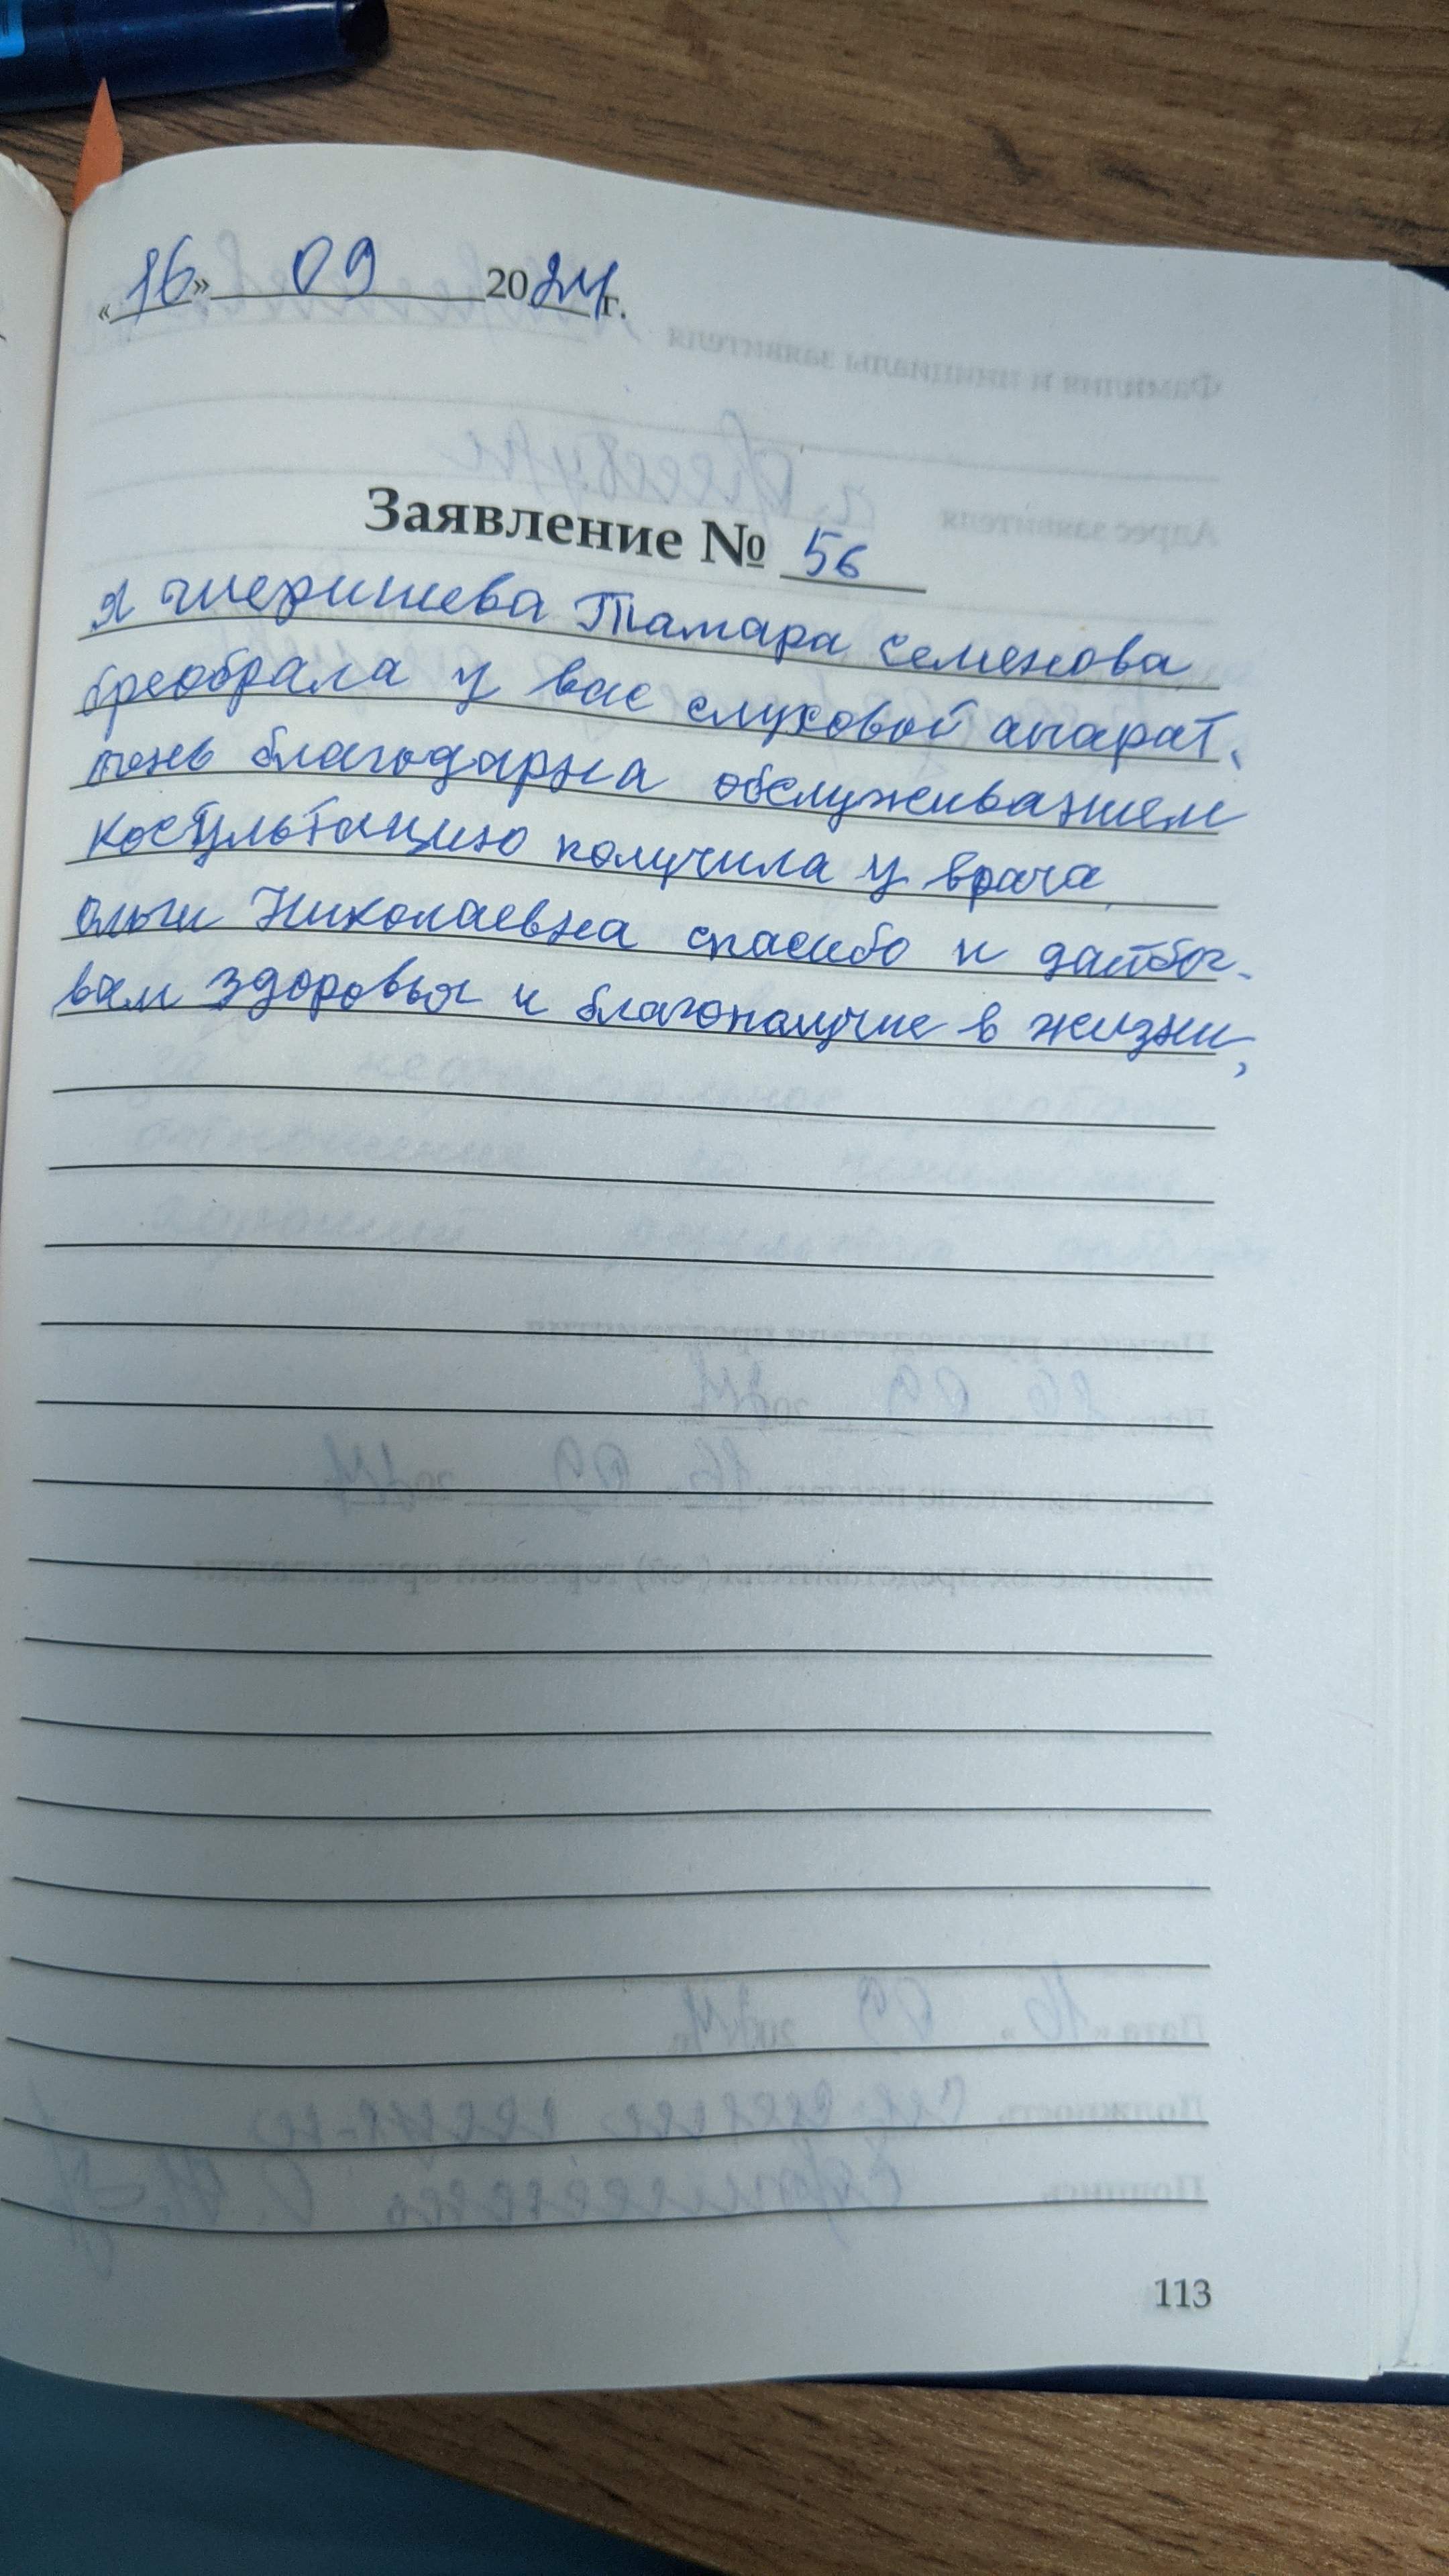 «16» 09 2024г.
Заявление № 56
я Тамара семенова
бреобрала у вас слуховой апарат.
очень благодарна обслуживанием
костультацию получила у врача
ольги Николаевна спасибо и дайбог
вам здоровья и благополучие в жизни,
113